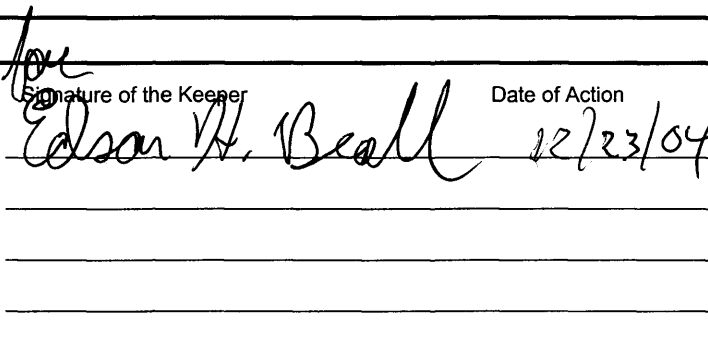 for
Signature of the Keeper Date of Action
Edson H. Beall 12/23/04